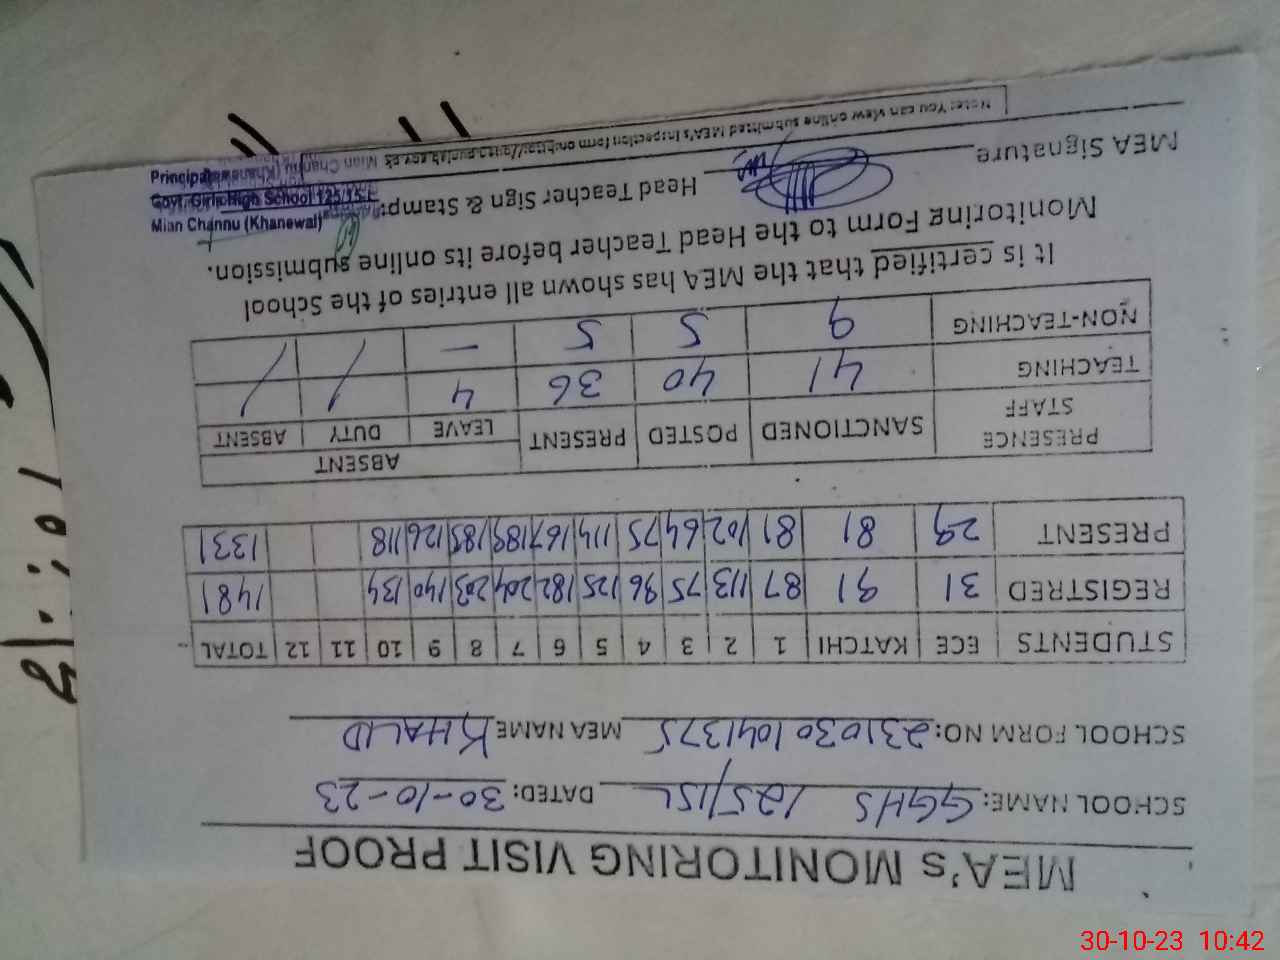 MEA's MONITORING VISIT PROOF
SCHOOL NAME: GGHS 125/15L DATED: 30-10-23
SCHOOL FORM NO: 2310301041375 MEA NAME KHALID
STUDENTS ECE KATCHI 1 2 3 4 5 6 7 8 9 10 11 12 TOTAL
REGISTRED 31 91 87 113 75 96 125 182 204 203 140 134 1481
PRESENT 29 81 81 102 64 75 114 167 189 185 126 118 1331
PRESENCE STAFF SANCTIONED POSTED PRESENT ABSENT
LEAVE DUTY ABSENT
TEACHING 41 40 36 4 / /
NON-TEACHING 6 5 5 - / /
It is certified that the MEA has shown all entries of the School
Monitoring Form to the Head Teacher before its online submission.
MEA Signature Head Teacher Sign & Stamp:
Principal
Govt. Girls High School 125/15-L
Mian Channu (Khanewal)
Note: You can view online submitted MEA's inspection form on
30-10-23 10:42